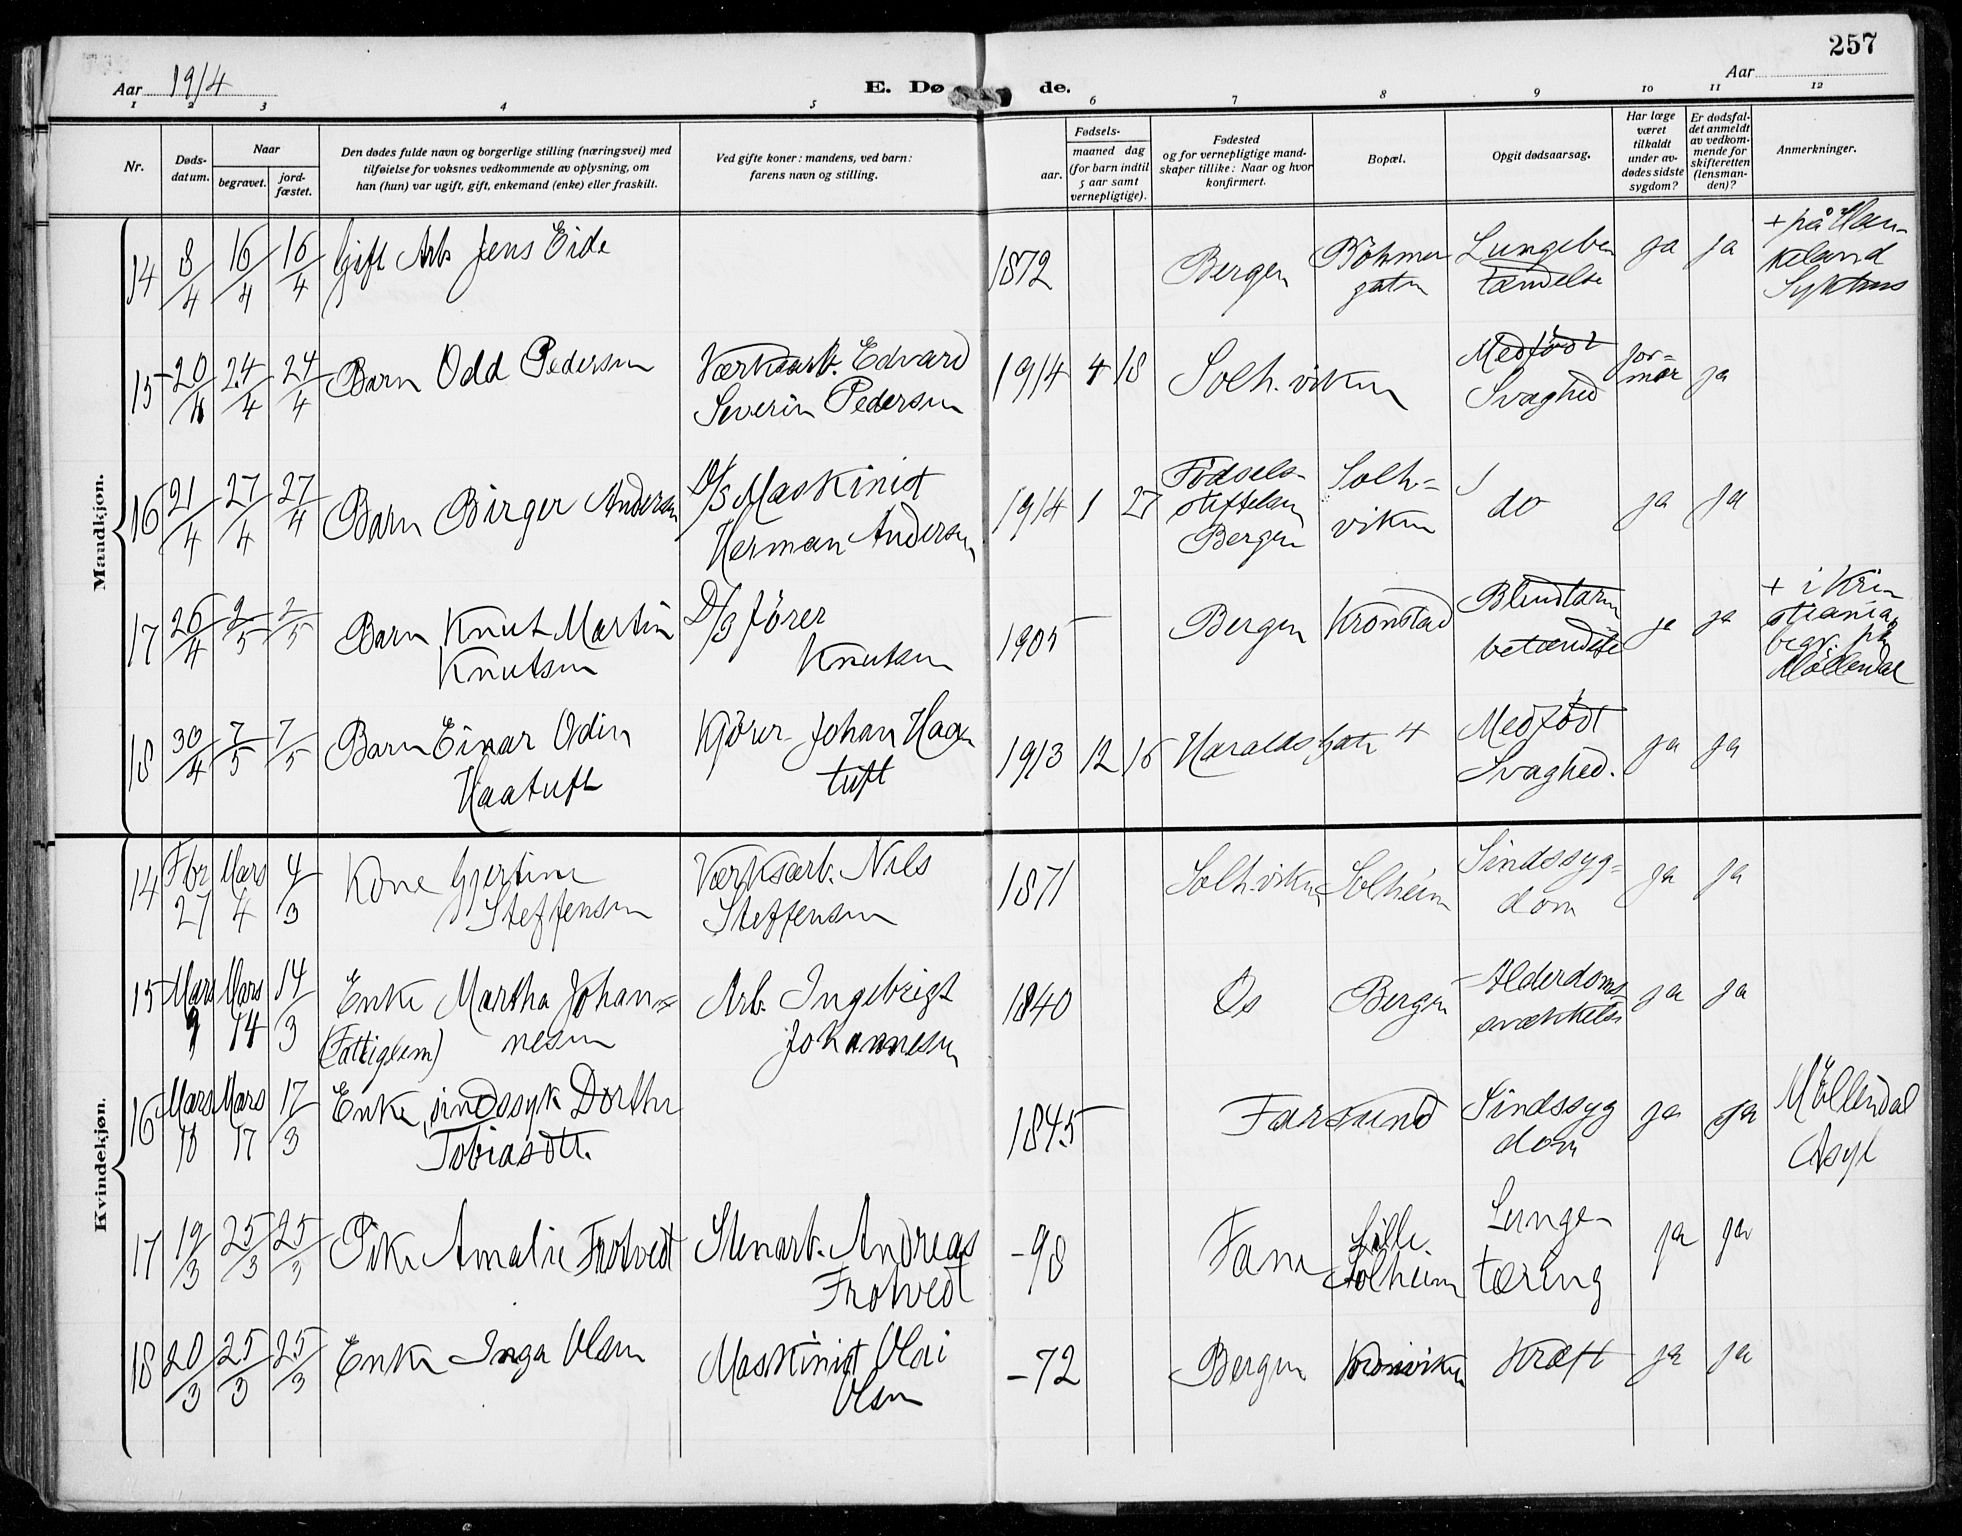 257
Aar 1914
E. Dø de.
Aar
1 2 3 4 5 6 7 8 9 10 11 12
Nr.
Døds-
datum.
Naar
begravet.
jord-
fæstet.
Den dødes fulde navn og borgerlige stilling (næringsvei) med
tilføielse for voksnes vedkommende av oplysning, om
han (hun) var ugift, gift, enkemand (enke) eller fraskilt.
Ved gifte koner: mandens, ved barn:
farens navn og stilling.
Fødsels-
aar.
maaned dag
(for barn indtil
5 aar samt
vernepligtige).
Fødested
og for vernepligtige mand-
skaper tillike: Naar og hvor
konfirmert.
Bopæl.
Opgit dødsaarsag.
Har læge
været
tilkaldt
under av-
dødes sidste
sygdom?
Er dødsfal-
det anmeldt
av vedkom-
mende for
skifteretten
(lensman-
den)?
Anmerkninger.
Maadkjøn.
14 8/4 16/4 16/4 Gift Arb Jens Eide 1872 Bergen Böhmer Lungebe ja ja + på Hau-
gaten tændelse keland
Sykehus
15 20/4 24/4 24/4 Barn Odd Pedersen Værksarb. Edvard 1914 4 18 Solh.viken Medfødt Jor= ja
Severin Pedersen Svaghed mor
16 21/4 27/4 27/4 Barn Birger Andersen D/S Maskinist 1914 1 27 Fødsels- Solh= do ja ja
Herman Andersen stiftelsen viken
Bergen
17 26/4 2/5 2/5 Barn Knut Martin D/S förer 1905 Bergen Kronstad Blindtarm ja ja + i Kri
Knutsen Knutsen betændelse stiania,
begr. på
Möllendal
18 30/4 7/5 7/5 Barn Einar Odin Kjörer Johan Haga 1913 12 16 Haraldsgate 4 Medfødt ja ja
Haatuft tuft Svaghed.
Kvindekjøn.
14 Fbr Mars 4/3 Kone Gjertine Værksarb. Nils 1871 Solh.viken Solheim Sindssyg= ja ja
27 4 Steffensen Steffensen dom
15 Mars Mars 14/3 Enke Martha Johan= Arb. Ingebrigt 1840 Os Bergen Alderdoms ja ja
9 14 (Fattiglem) nesen Johannesen svækkelse
16 Mars Mars 17/3 Enke, sindssyk Dorthe 1845 Farsund Sindssyg ja ja Möllendal
17 Tobiasdtt. dom Asyl
17 19/3 25/3 25/3 Pike Amalie Frotvedt Stenarb. Andreas -98 Fane Lille Lunge ja ja
Frotvedt Solheim tæring
18 20/3 25/3 25/3 Enke Inga Olsen Maskinist Olai -72 Bergen Kronviken Kræft ja ja
Olsen